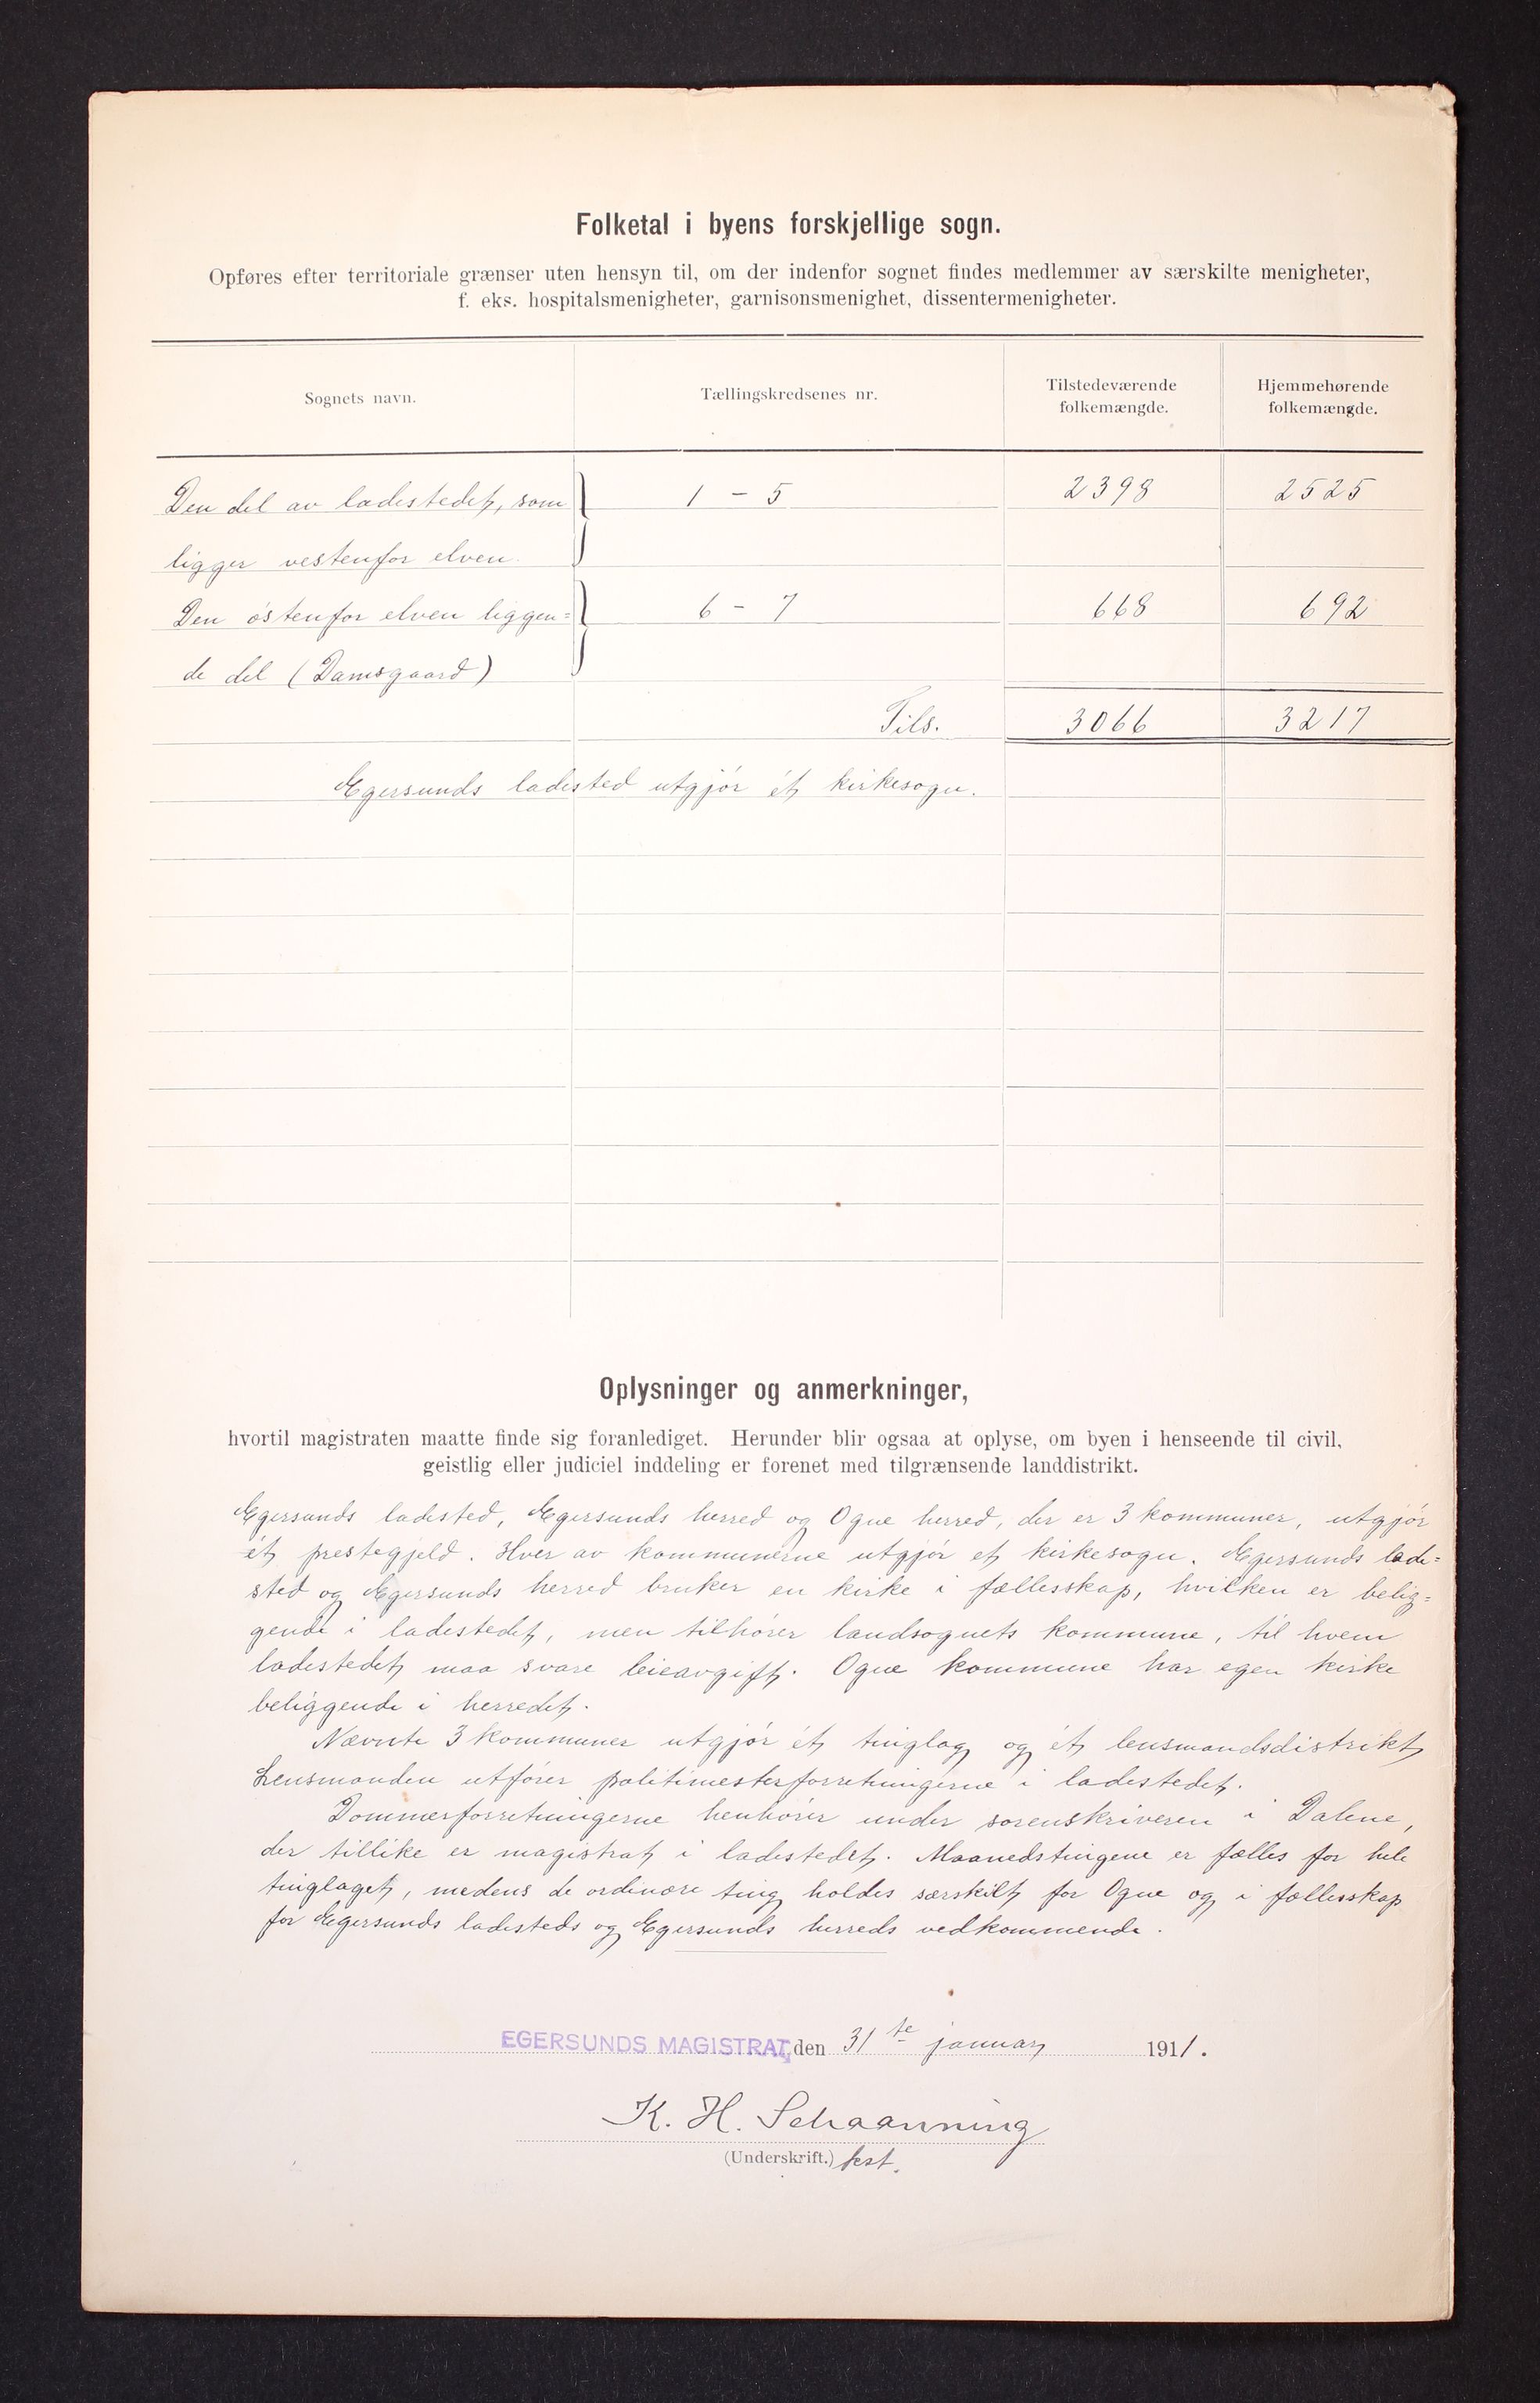 Folketal i byens forskjellige sogn.
Opføres efter territoriale grænser uten hensyn til, om der indenfor sognet findes medlemmer av særskilte menigheter,
f. eks. hospitalsmenigheter, garnisonsmenighet, dissentermenigheter.
Sognets navn. Tællingskredsenes nr. Tilstedeværende folkemængde. Hjemmehørende folkemængde.
Den del av ladestedet, som 1 - 5 2398 2525
ligger vestenfor elven.
Den østenfor elven liggen= 6 - 7 668 692
de del (Damsgaard)
Tils. 3066 3217
Egersunds ladested utgjør ét kirkesogn.
Oplysninger og anmerkninger,
hvortil magistraten maatte finde sig foranlediget. Herunder blir ogsaa at oplyse, om byen i henseende til civil,
geistlig eller judiciel inddeling er forenet med tilgrænsende landdistrikt.
Egersunds ladested, Egersunds herred og Ogne herred, der er 3 kommuner, utgjør
ét prestegjeld. Hver av kommunerne utgjør et kirkesogn. Egersunds lade=
sted og Egersunds herred bruker en kirke i fællesskap, hvilken er belig=
gende i ladestedet, men tilhører landsognets kommune, til hvem
ladestedet maa svare leieavgift. Ogne kommune har egen kirke
beliggende i herredet.
Nævnte 3 kommuner utgjør ét tinglag og ét lensmandsdistrikt
Lensmanden utfører politimesterforretningerne i ladestedet.
Dommerforretningerne henhører under sorenskriveren i Dalene,
der tillike er magistrat i ladestedet. Maanedstingene er fælles for hele
tinglaget, medens de ordinære ting holdes særskilt for Ogne og i fællesskap
for Egersunds ladesteds og Egersunds herreds vedkommende.
EGERSUNDS MAGISTRAT, den 31te januar 1911.
K. H. Schaanning
(Underskrift.) kst.